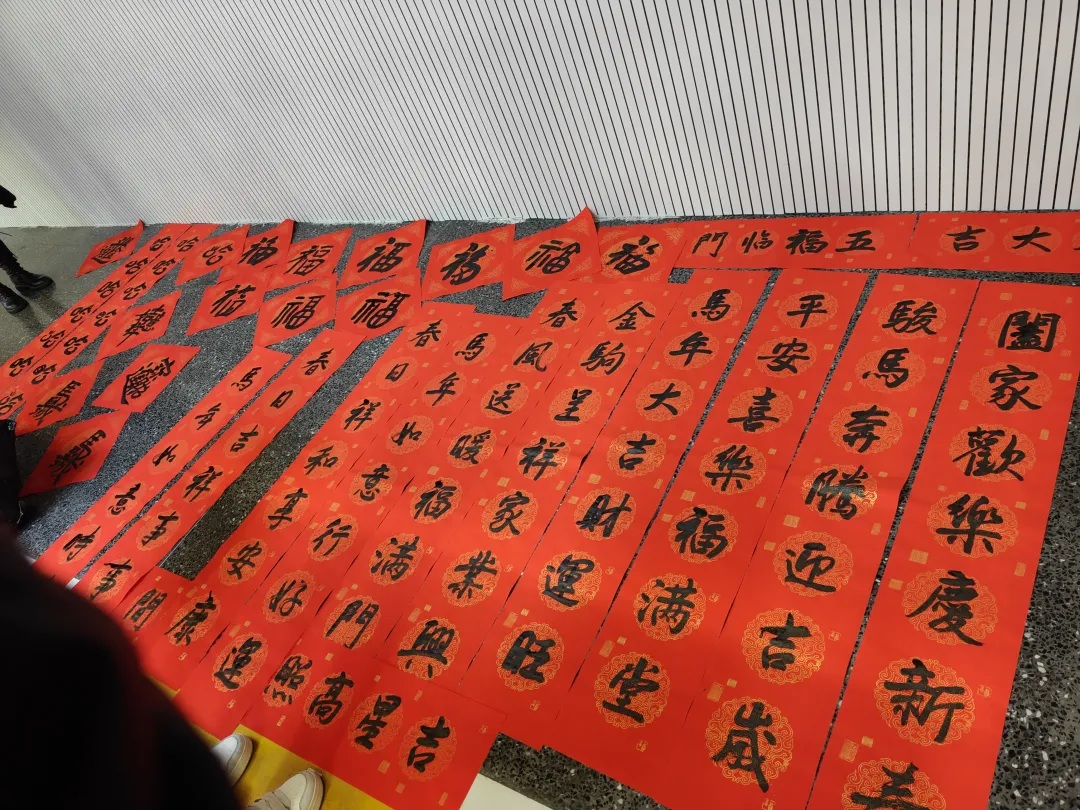 大吉
五福临門
闔家歡樂慶新
駿馬奔騰迎吉歲
平安喜樂福满堂
馬年大吉財運旺
金駒呈祥家業興
春風送暖福满門
馬年如意行好運
春日祥和享安康
春日吉祥事事
馬年如意时
吉星高照
福
福
福
福
福
福
福
福
福